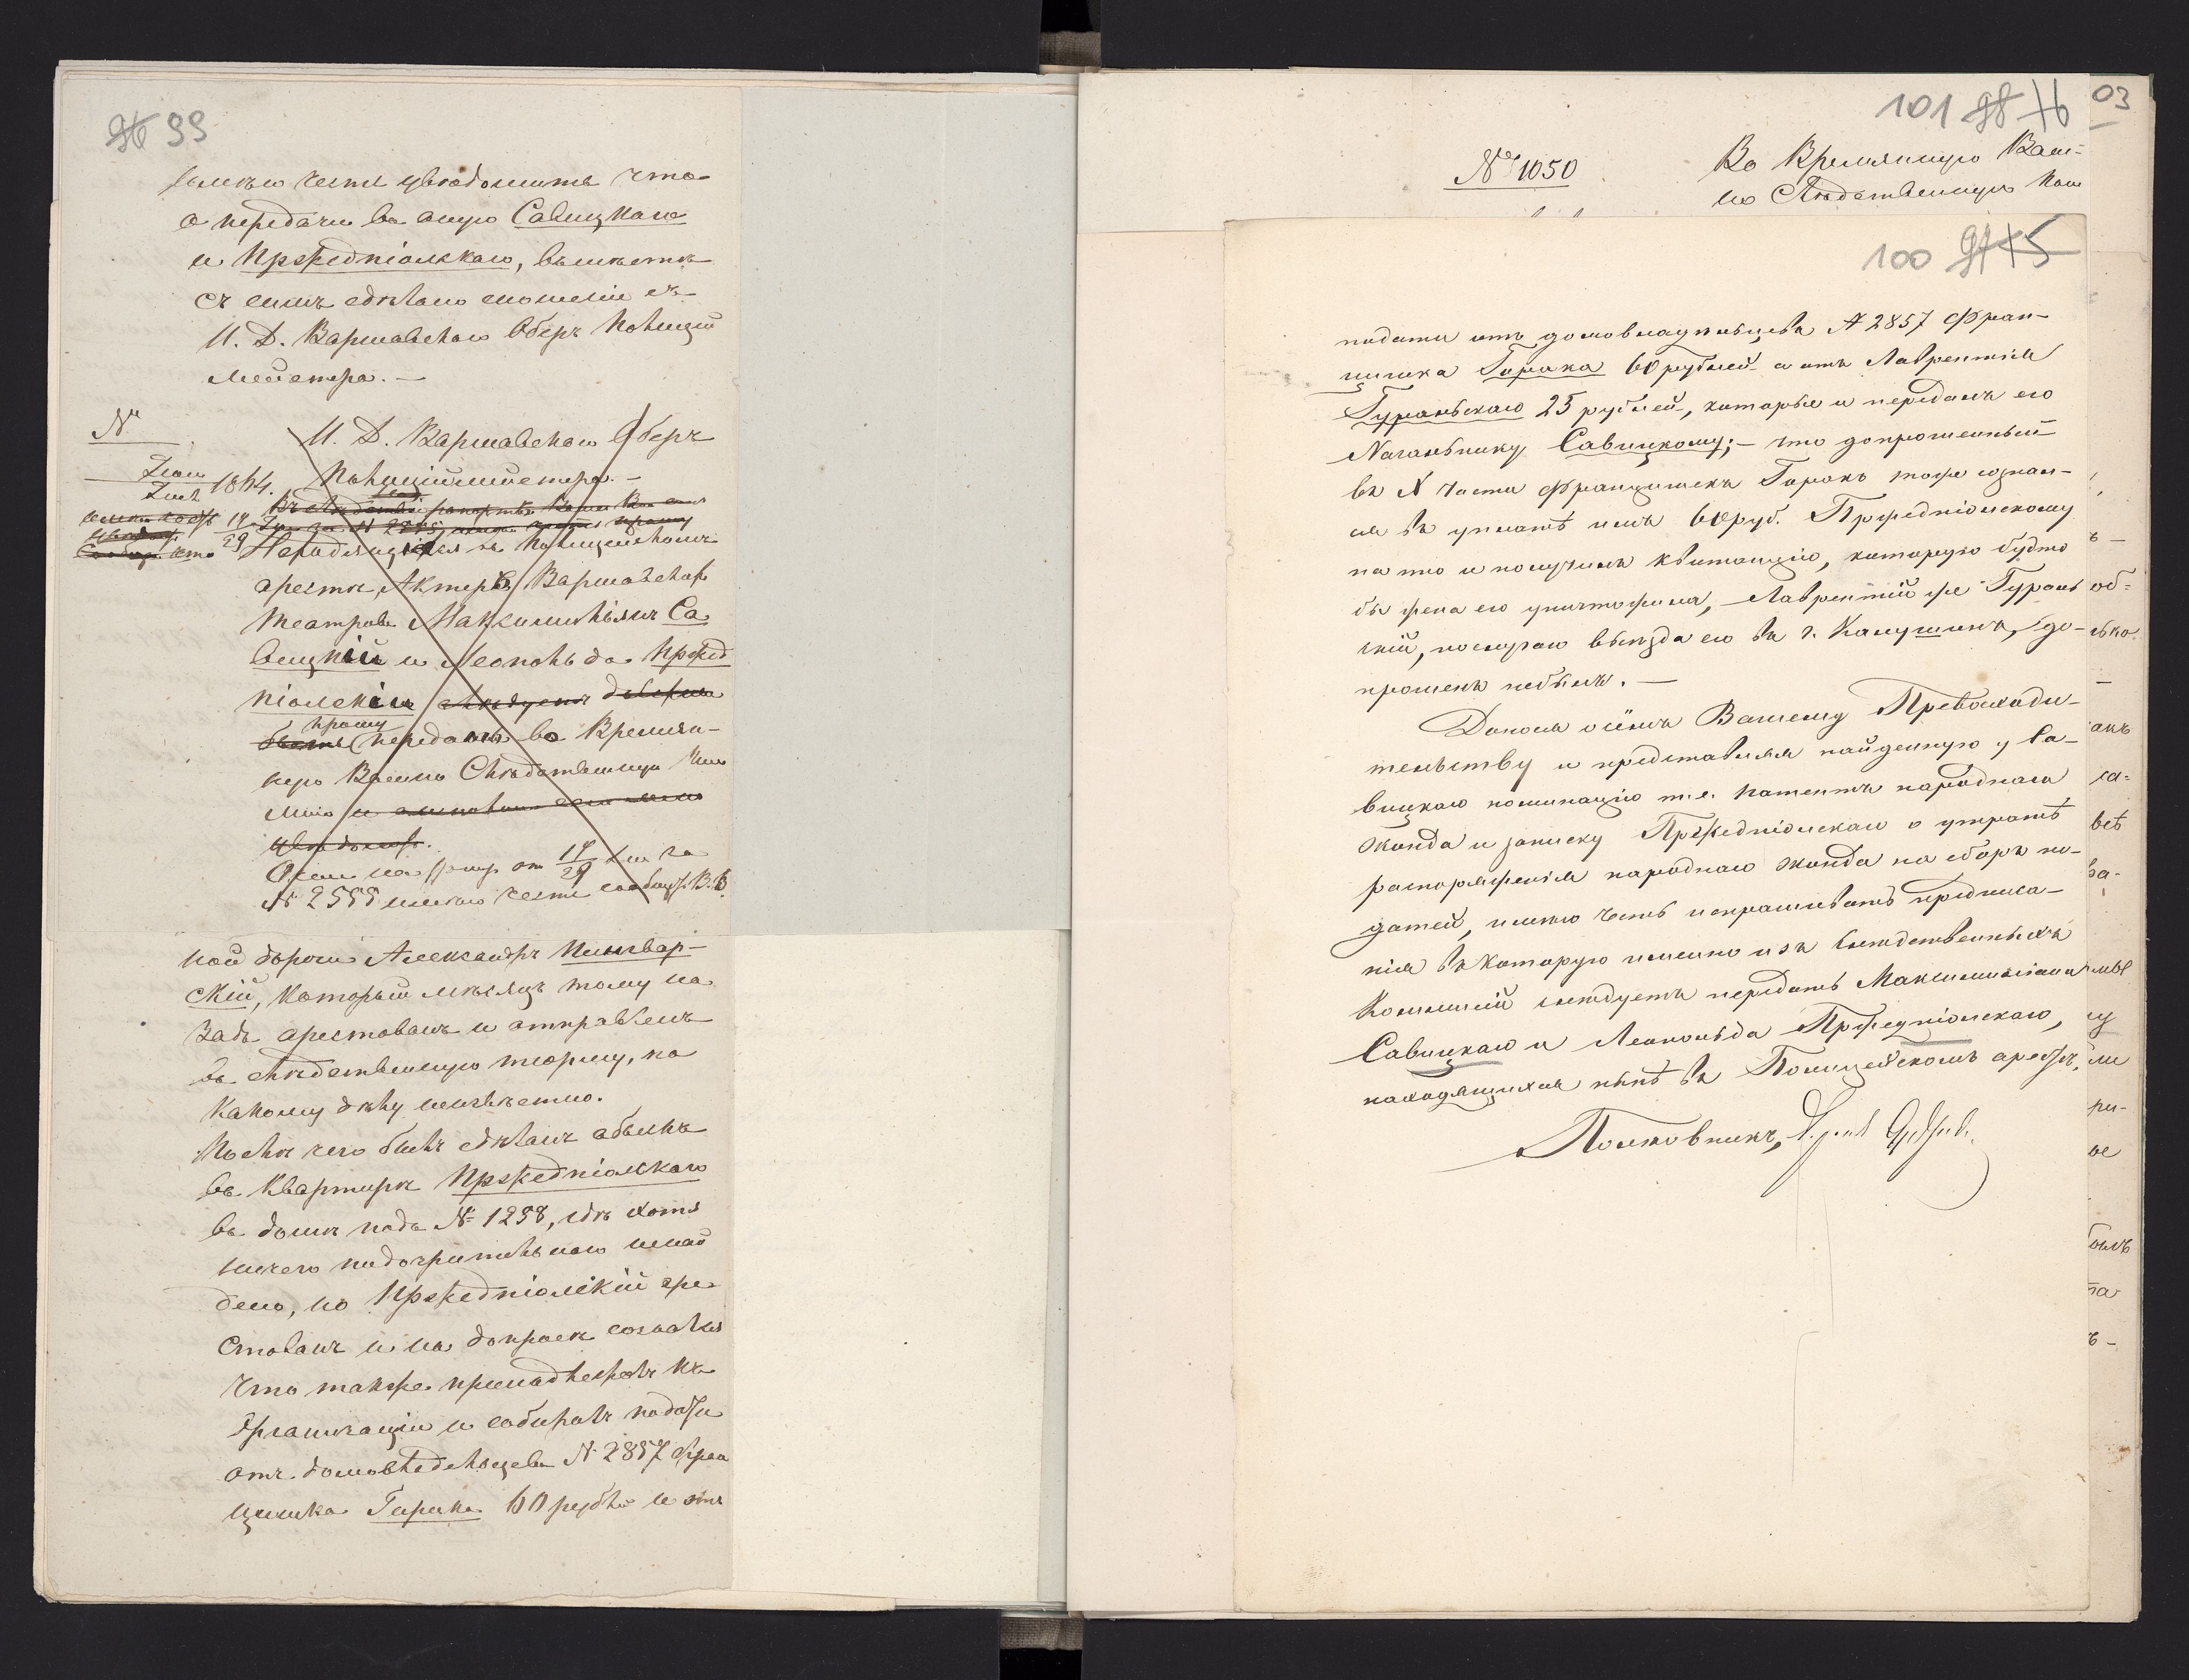 96 99
имѣю честь увѣдомить что
о передачи въ оную Савицкаго
и Пржедпіольскаго, вмѣстѣ
съ симъ сдѣлано сношеніе съ
И. Д. Варшавскаго Оберъ Полицій
мейстера. —
№
1864.
И. Д. Варшавскаго Оберъ
Полиціймейстера. —
29 Находящихся въ Полицейскомъ
арестѣ, Актера Варшавскаго
театра Максимиліянъ Са
вицкій и Леопольда Пржед
піольскій слѣдуетъ
прошу
передать во Времен-
ную Военно Слѣдственную Ком
мисію и
увѣдомить.
от 17/29 за
№ 2555 имѣю честь сообщ. В. В.
ной дороги Александръ Пиньвар-
скій, который мѣсяцъ тому на
задъ арестованъ и отправленъ
въ слѣдственную тюрьму, по
какому дѣлу неизвѣстно.
Послѣ чего былъ сдѣланъ обыскъ
въ квартирѣ Пржедпіольскаго
въ домѣ подъ № 1258, гдѣ хотя
ничего подозрительнаго ненай
дено, но Пржедпіольскій аре
стованъ и на допросѣ сознался
что также принадлежалъ къ
Организаціи и собиралъ подати
отъ домовладѣльцевъ № 2857 Фран
цишка Гирика 60 рублей и отъ
101 98 76
03
№ 1050
Во Временную Воен-
но Слѣдственную Ком
100 97 75
подати отъ домовладѣльцевъ № 2857 Фран-
цишка Горака 60 рублей а отъ Лаврентія
Гуральскаго 25 рублей, которые и передалъ его
Начальнику Савицкому; — что допрошенный
въ X части Францишекъ Горакъ тоже сознал-
ся въ уплатѣ имъ 60 руб. Пржедпіольскому
на что и получилъ квитанцію, которую будто
бы жена его уничтожила, Лаврентій же Гураль
скій, по случаю выѣзда его въ г. Калушинъ, до-
прошенъ небылъ. —
Донося о семъ Вашему Превосходи-
тельству и представляя найденную у Са-
вицкаго номинацію т. е. патентъ народнаго
жонда и записку Пржедпіольскаго о утратѣ
распоряженія народнаго жонда на сборъ по-
датей, имѣю честь испрашивать предписа-
нія въ которую именно изъ слѣдственныхъ
Коммисій слѣдуетъ передать Максимиліана
Савицкаго и Леопольда Пржедпіольскаго,
находящихся нынѣ въ Полицейскомъ арестѣ.
Полковникъ,